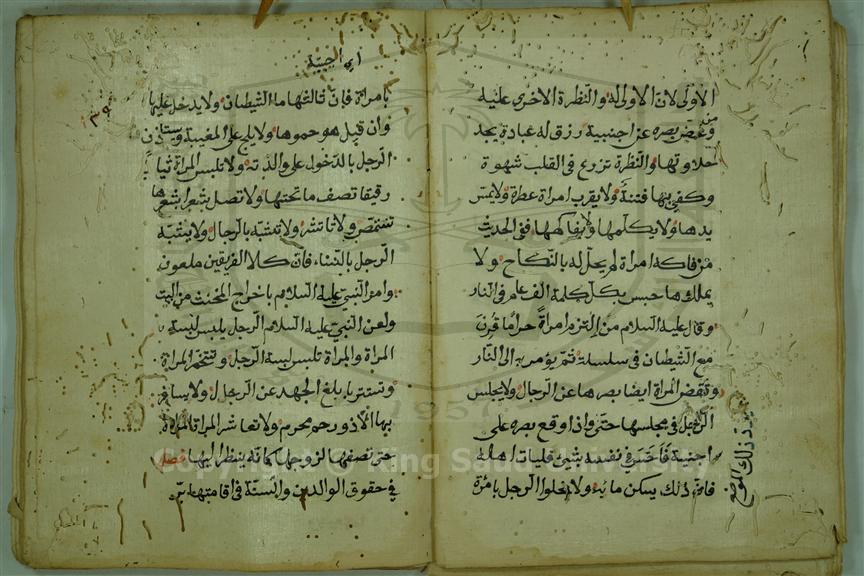 الاولى لان الاولى له والنظرة الاخرى عليه
ومن غض بصره عن اجنبية رزق له عبادة يجد
حلاوتها والنظرة تزرع فى القلب شهوة
وكفى بها فتنة ولا يقرب امراة عطرة ولا يمس
يدها ولا يكلمها ولا يفاكهها ففى الحديث
من فاكه امراة لم يحل له بالنكاح ولا
يملكها حبس بكل كلمة الف عام فى النار
وقال عليه السلام من التزم امراة حراما قرن
مع الشيطان فى سلسلة ثم يؤمر به الى النار
وتغض المراة ايضا بصرها عن الرجال ولا يجلس
الرجل فى مجلسها حتى واذا وقع بصره على
اجنبية فاحس فى نفسه بشئ فليات اهله
فان ذلك يسكن ما به ولا يخلوا الرجل بامرة
ذلك الموضع
اى اجنبية
بامراة فان ثالثهما الشيطان ولا يدخل عليها
وان قيل هو حموها ولا يلج على المغيبة ويستاذن
الرجل بالدخول على والدته ولا تلبس المراة ثيابا
رقيقا تصف ما تحتها ولا تصل بشعرا بشعرها
ولا تتشبه بالرجال ولا يتشبه
الرجل بالنساء فان كلا الفريقين ملعون
وامر النبى عليه السلام باخراج المخنث من البيت
ولعن النبى عليه السلام الرجل يلبس لبسة
المراة والمراة تلبس لبسة الرجل وتتخمر المراة
وتستتر بابلغ الجهد عن الرجل ولا يسافر
بها الا ذو رحم محرم ولا تعاشر المراة المراة
حتى تصفها لزوجها كانه ينظر اليها فصل
فى حقوق الوالدين والسنة فى اقامتها